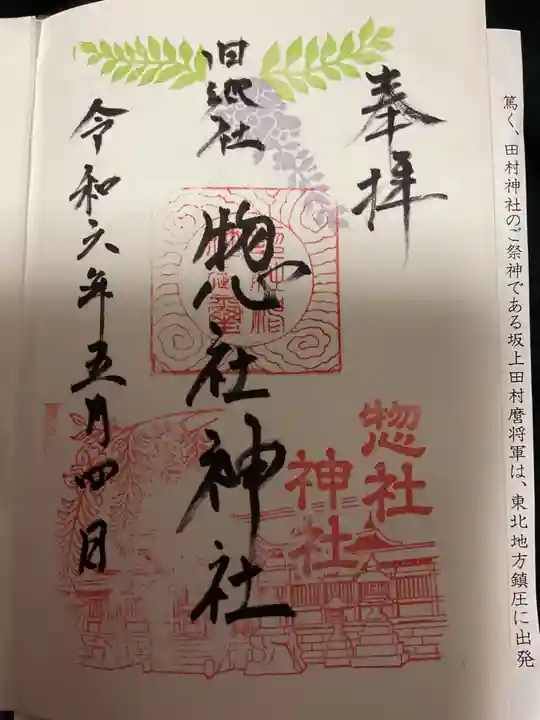 篤く、田村神社のご祭神である坂上田村麿将軍は、東北地方鎮圧に出発
奉拝
惣社
神社
旧縣社
惣社神社
令和六年五月四日